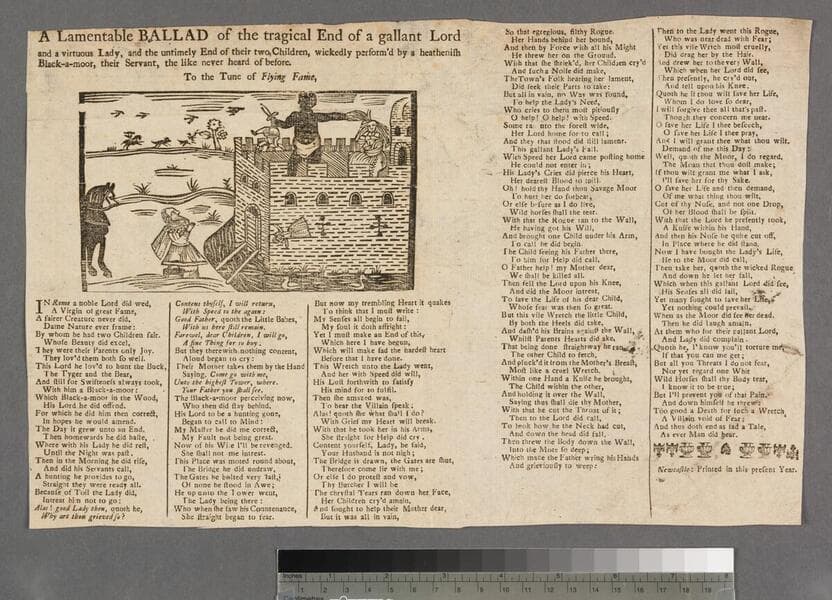 A Lamentable BALLAD of the tragical End of a gallant Lord
and a virtuous Lady, and the untimely End of their two Children, wickedly perform'd by a heatheniſh
Black-a-moor, their Servant, the like never heard of before.
To the Tune of Flying Fame,
IN Rome a noble Lord did wed,
A Virgin of great Fame,
A fairer Creature never did,
Dame Nature ever frame:
By whom he had two Children fair,
Whoſe Beauty did excel,
They were their Parents only Joy.
They lov'd them both ſo well.
This Lord he lov'd to hunt the Buck,
The Tyger and the Bear,
And ſtill for Swiftneſs always took,
With him a Black-a-moor:
Which Black-a-moor in the Wood,
His Lord he did offend.
For which he did him then correct,
In hopes he would amend.
The Day it grew unto an End.
Then homewards he did haſte,
Where with his Lady he did reſt,
Until the Night was paſt.
Then in the Morning he did riſe,
And did his Servants call,
A hunting he provides to go,
Straight they were ready all.
Becauſe of Toil the Lady did,
Intreat him not to go:
Alas! good Lady then, quoth he,
Why art thou grieved ſo?
Content thyſelf, I will return,
With Speed to thee again:
Good Father, quoth the Little Babes,
With us here ſtill remain.
Farewel, dear Children, I will go,
A fine Thing for to buy.
But they therewith nothing content,
Aloud began to cry:
Their Mother takes them by the Hand
Saying, Come go with me,
Unto the higheſt Tower, where.
Your Father you ſhall ſee.
The Black-a-moor perceiving now,
Who then did ſtay behind,
His Lord to be a hunting gone,
Began to call to Mind:
My Maſter he did me correct,
My Fault not being great.
Now of his Wife I'll be revenged.
She ſhall not me intreat.
This Place was moted round about,
The Bridge he did undraw,
The Gates he bolted very faſt,
Of none he ſtood in Awe;
He up into the Tower went,
The Lady being there:
Who when ſhe ſaw his Countenance,
She ſtraight began to fear.
But now my trembling Heart it quakes
To think that I muſt write:
My Senſes all begin to fail,
My ſoul it doth affright:
Yet I muſt make an End of this,
Which here I have begun,
Which will make ſad the hardeſt heart
Before that I have done.
This Wretch unto the Lady went,
And her with Speed did will,
His Luſt forthwith to ſatisfy
His mind for to fulfil.
Then ſhe amazed was,
To hear the Villain ſpeak;
Alas! quoth ſhe what ſhall I do?
With Grief my Heart will break.
With that he took her in his Arms,
She ſtraight for Help did cry.
Content yourſelf, Lady, he ſaid,
Your Huſband is not nigh;
The Bridge is drawn, the Gates are ſhut,
Therefore come lie with me;
Or elſe I do proteſt and vow,
Thy Butcher I will be
The chriſtal Tears ran down her Face,
Her Children cry'd amain,
And ſought to help their Mother dear,
But it was all in vain,
So that egregious, filthy Rogue.
Her Hands behind her bound,
And then by Force with all his Might
He threw her on the Ground.
With that ſhe ſhriek'd, her Children cry'd
And ſuch a Noiſe did make,
The Town's Folk hearing her lament,
Did ſeek their Parts to take:
But all in vain, no Way was found,
To help the Lady's Need,
Who cries to them moſt piteouſly
O help! O help! with Speed.
Some ran into the foreſt wide,
Her Lord home for to call;
And they that ſtood did ſtill lament.
This gallant Lady's Fall.
With Speed her Lord came poſting home
He could not enter in;
His Lady's Cries did pierce his Heart,
Her deareſt Blood to ſpill.
Oh! hold thy Hand thou Savage Moor
To hurt her do forbear,
Or elſe be ſure as I do live,
Wild horſes ſhall thee tear.
With that the Rogue ran to the Wall,
He having got his Will,
And brought one Child under his Arm,
To call he did begin
The Child ſeeing his Father there,
To him for Help did call,
O Father help! my Mother dear,
We ſhall be killed all.
Then fell the Lord upon his Knee,
And did the Moor intreat,
To ſave the Life of his dear Child,
Whoſe fear was then ſo great.
But this vile Wretch the little Child,
By both the Heels did take,
And daſh'd his Brains againſt the Wall,
Whilſt Parents Hearts did ake.
That being done ſtraightway he ran
The other Child to fetch,
And pluck'd it from the Mother's Breaſt,
Moſt like a cruel Wretch.
Within one Hand a Knife he brought,
The Child within the other,
And holding it over the Wall,
Saying thus ſhall die thy Mother,
With that he cut the Throat of it;
Then to the Lord did call,
To look how the Neck had cut,
And down the head did fall.
Then threw the Body down the Wall,
Into the Mote ſo deep;
Which made the Father wring his Hands
And grievouſly to weep:
Then to the Lady went this Rogue,
Who was near dead with Fear;
Yet this vile Wretch moſt cruelly,
Did drag her by the Hair.
And drew her to the very Wall,
Which when her Lord did ſee,
Then preſently, he cry'd out,
And fell upon his Knee.
Quoth he If thou wilt ſave her Life,
Whom I do love ſo dear,
I will forgive thee all that's paſt.
Though they concern me near.
O ſave her Life I thee beſeech,
O ſave her Life I thee pray,
And I will grant thee what thou wilt.
Demand of me this Day:
Well, quoth the Moor, I do regard.
The Moan that thou doſt make;
If thou wilt grant me what I ask,
I'll ſave her for thy Sake.
O ſave her Life and then demand,
Of me what thing thou wilt,
Cut of thy Noſe, and not one Drop,
Of her Blood ſhall be ſpilt.
With that the Lord he preſently took,
A Knife within his Hand,
And then his Noſe he quite cut off,
In Place where he did ſtand,
Now I have bought the Lady's Life,
He to the Moor did call,
Then take her, quoth the wicked Rogue
And down he let her fall,
Which when this gallant Lord did ſee,
His Senſes all did fail,
Yet many ſought to ſave her Life,
Yet nothing could prevail.
When as the Moor did ſee her dead.
Then he did laugh amain.
At them who for their gallant Lord,
And Lady did complain.
Quoth he, I know you'll torture me,
If that you can me get;
But all your Threats I do not fear,
Nor yet regard one Whit
Wild Horſes ſhall thy Body tear,
I know it to be true;
But I'll prevent you of that Pain.
And down himſelf he threw:
Too good a Death for ſuch a Wretch
A Villain void of Fear;
And thus doth end as ſad a Tale,
As ever Man did hear.
Newcaſtle: Printed in this preſent Year.
Inches 1 2 3 4 5 6 7 8
Centimetres 1 2 3 4 5 6 7 8 9 10 11 12 13 14 15 16 17 18 19